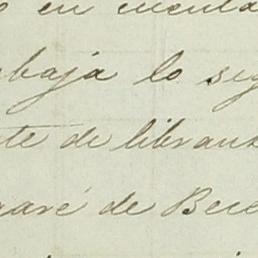 o en cuenta
baja lo seg
te de libranz
garé de Bece